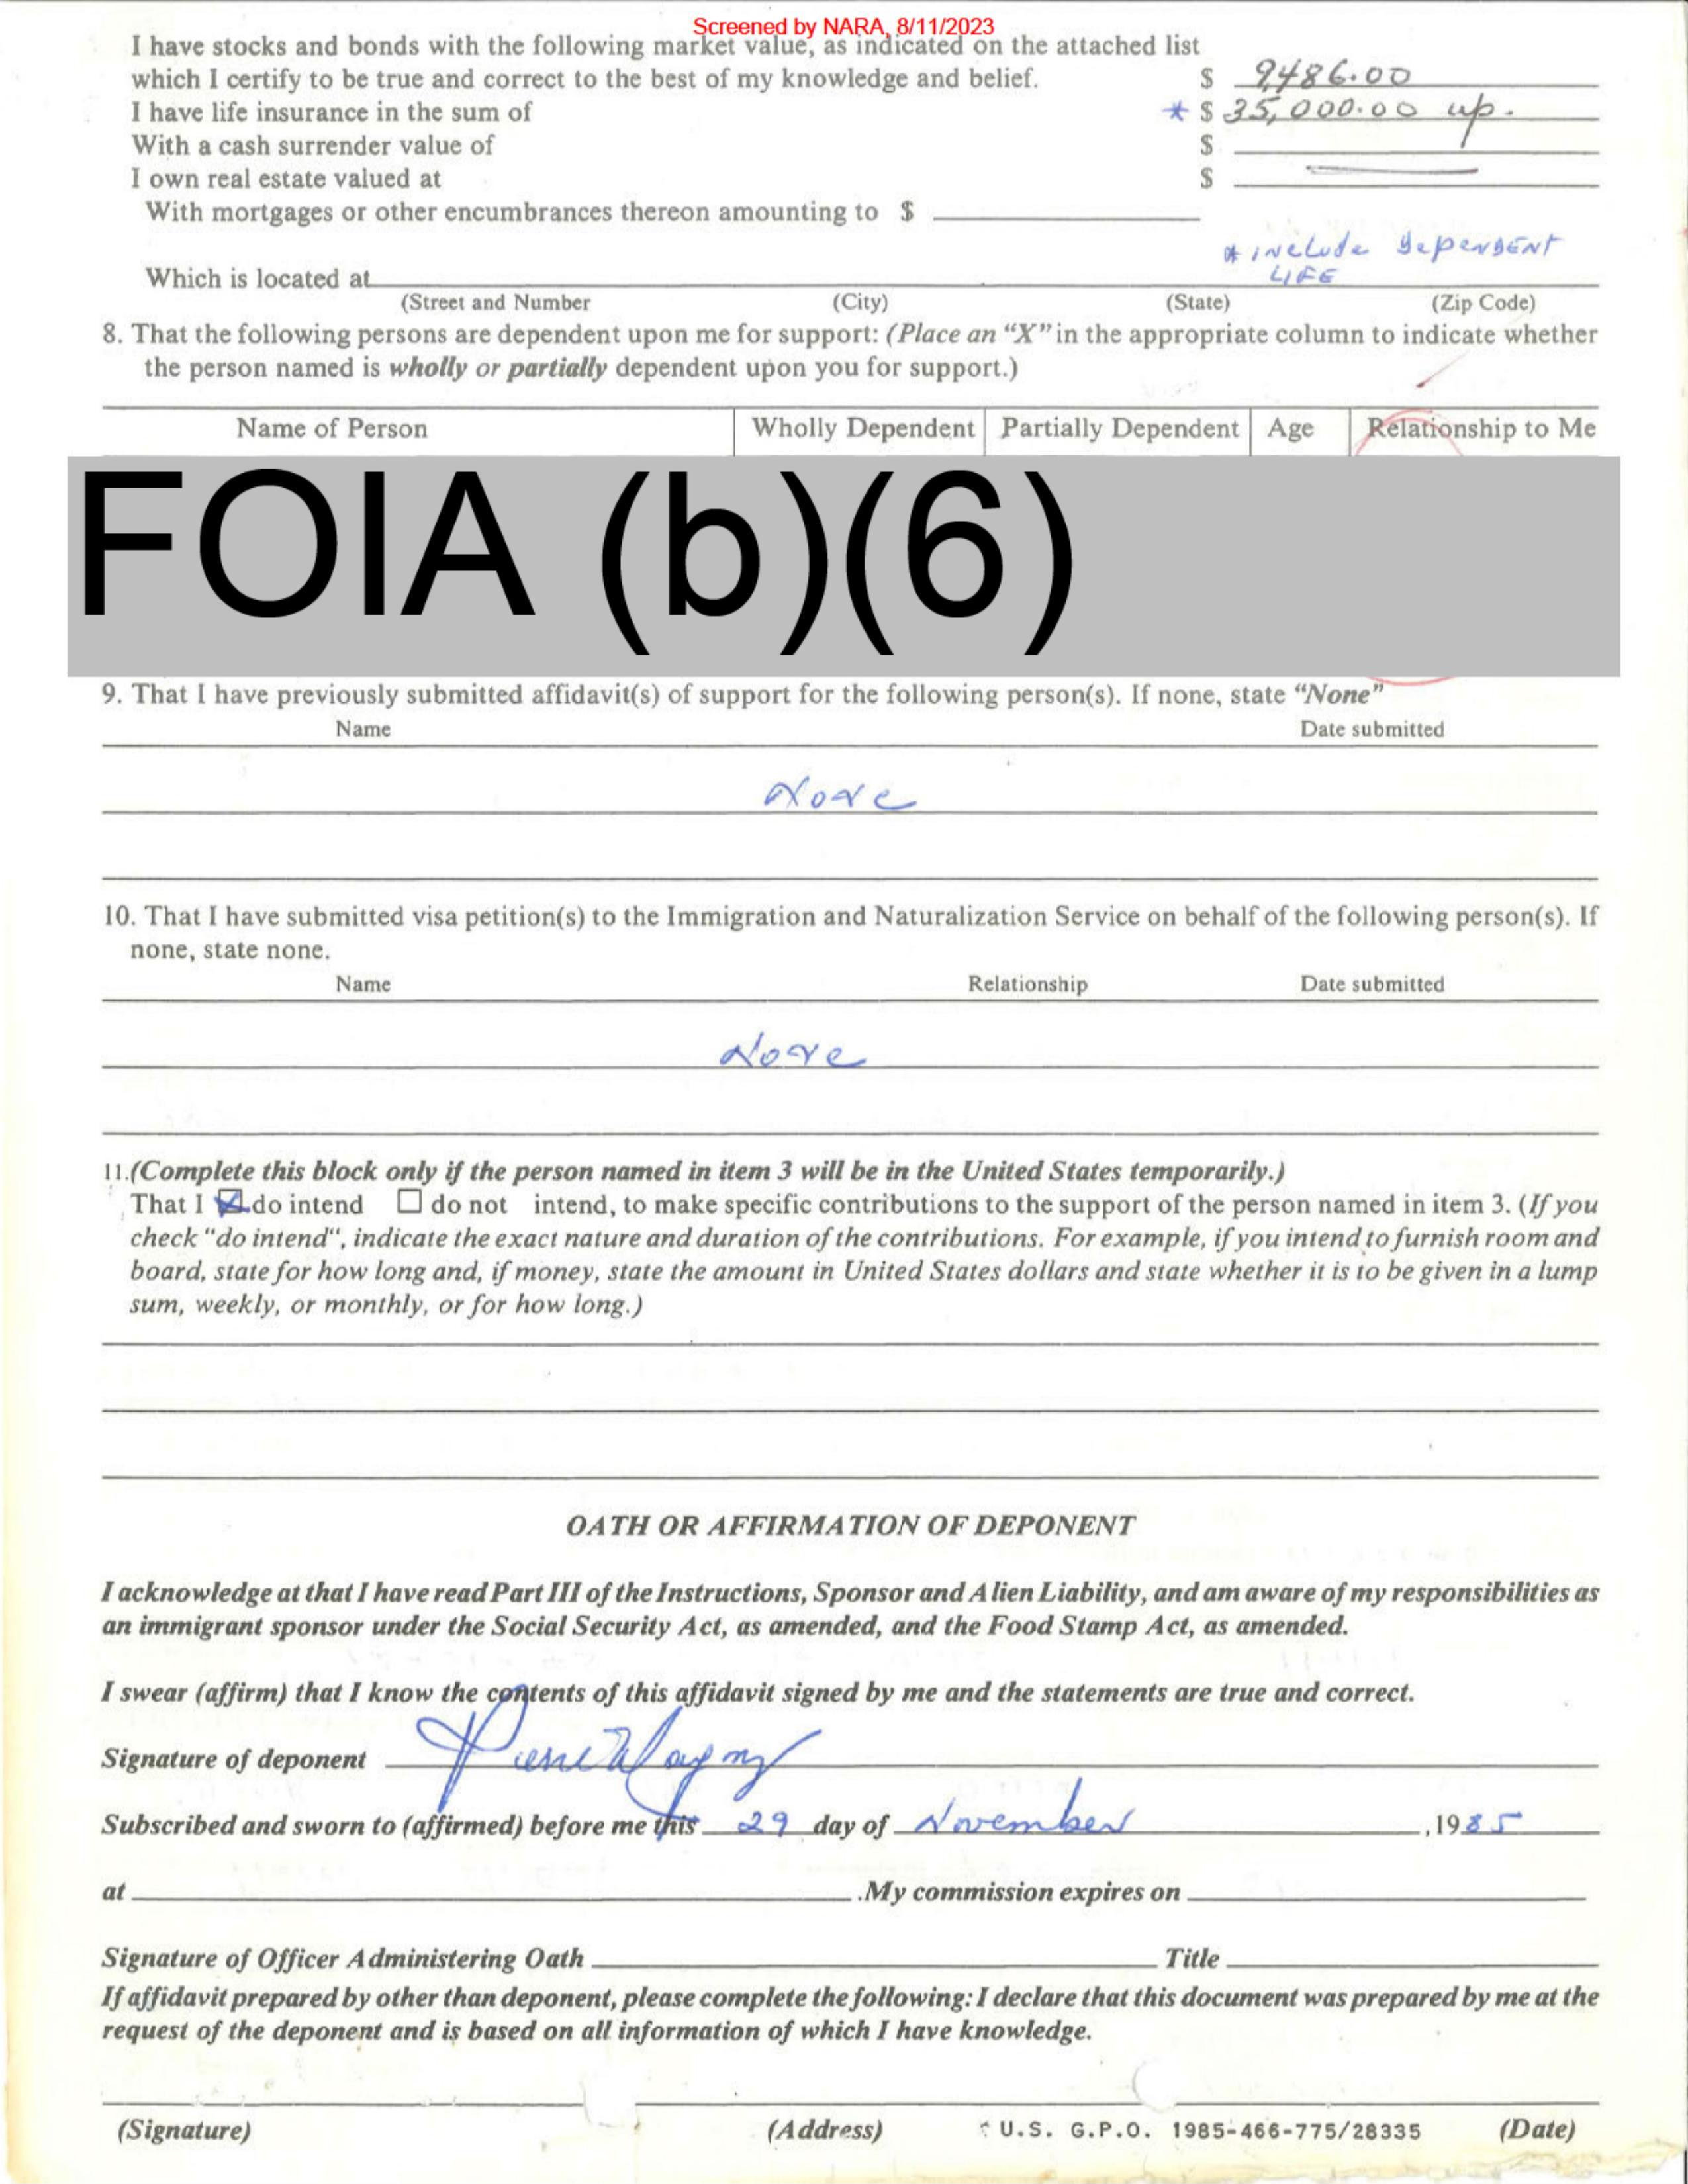 Screened by NARA, 8/11/2023
I have stocks and bonds with the following market value, as indicated on the attached list
which I certify to be true and correct to the best of my knowledge and belief. $ 9,486.00
I have life insurance in the sum of * $ 35,000.00 up.
With a cash surrender value of $
I own real estate valued at $
With mortgages or other encumbrances thereon amounting to $
* include dependent
LIFE
Which is located at
(Street and Number (City) (State) (Zip Code)
8. That the following persons are dependent upon me for support: (Place an “X” in the appropriate column to indicate whether
the person named is wholly or partially dependent upon you for support.)
Name of Person Wholly Dependent Partially Dependent Age Relationship to Me
FOIA (b)(6)
9. That I have previously submitted affidavit(s) of support for the following person(s). If none, state “None”
Name Date submitted
None
10. That I have submitted visa petition(s) to the Immigration and Naturalization Service on behalf of the following person(s). If
none, state none.
Name Relationship Date submitted
None
11.(Complete this block only if the person named in item 3 will be in the United States temporarily.)
That I ☒ do intend ☐ do not intend, to make specific contributions to the support of the person named in item 3. (If you
check "do intend", indicate the exact nature and duration of the contributions. For example, if you intend to furnish room and
board, state for how long and, if money, state the amount in United States dollars and state whether it is to be given in a lump
sum, weekly, or monthly, or for how long.)
OATH OR AFFIRMATION OF DEPONENT
I acknowledge at that I have read Part III of the Instructions, Sponsor and Alien Liability, and am aware of my responsibilities as
an immigrant sponsor under the Social Security Act, as amended, and the Food Stamp Act, as amended.
I swear (affirm) that I know the contents of this affidavit signed by me and the statements are true and correct.
Signature of deponent
Subscribed and sworn to (affirmed) before me this 29 day of November , 1985
at .My commission expires on
Signature of Officer Administering Oath Title
If affidavit prepared by other than deponent, please complete the following: I declare that this document was prepared by me at the
request of the deponent and is based on all information of which I have knowledge.
(Signature) (Address) U.S. G.P.O. 1985-466-775/28335 (Date)